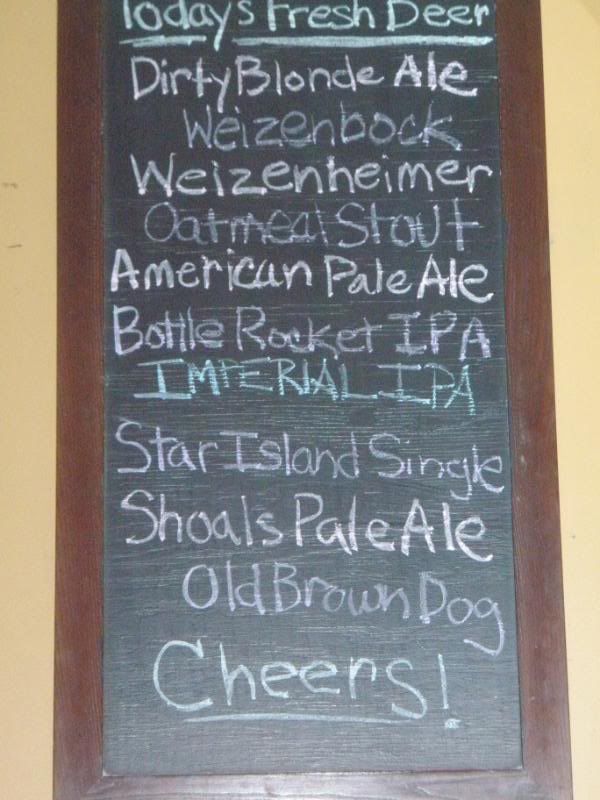 Today's Fresh Beer
Dirty Blonde Ale
Weizenbock
Weizenheimer
Oatmeal Stout
American Pale Ale
Bottle Rocket IPA
IMPERIAL IPA
Star Island Single
Shoal's Pale Ale
Old Brown Dog
Cheers!